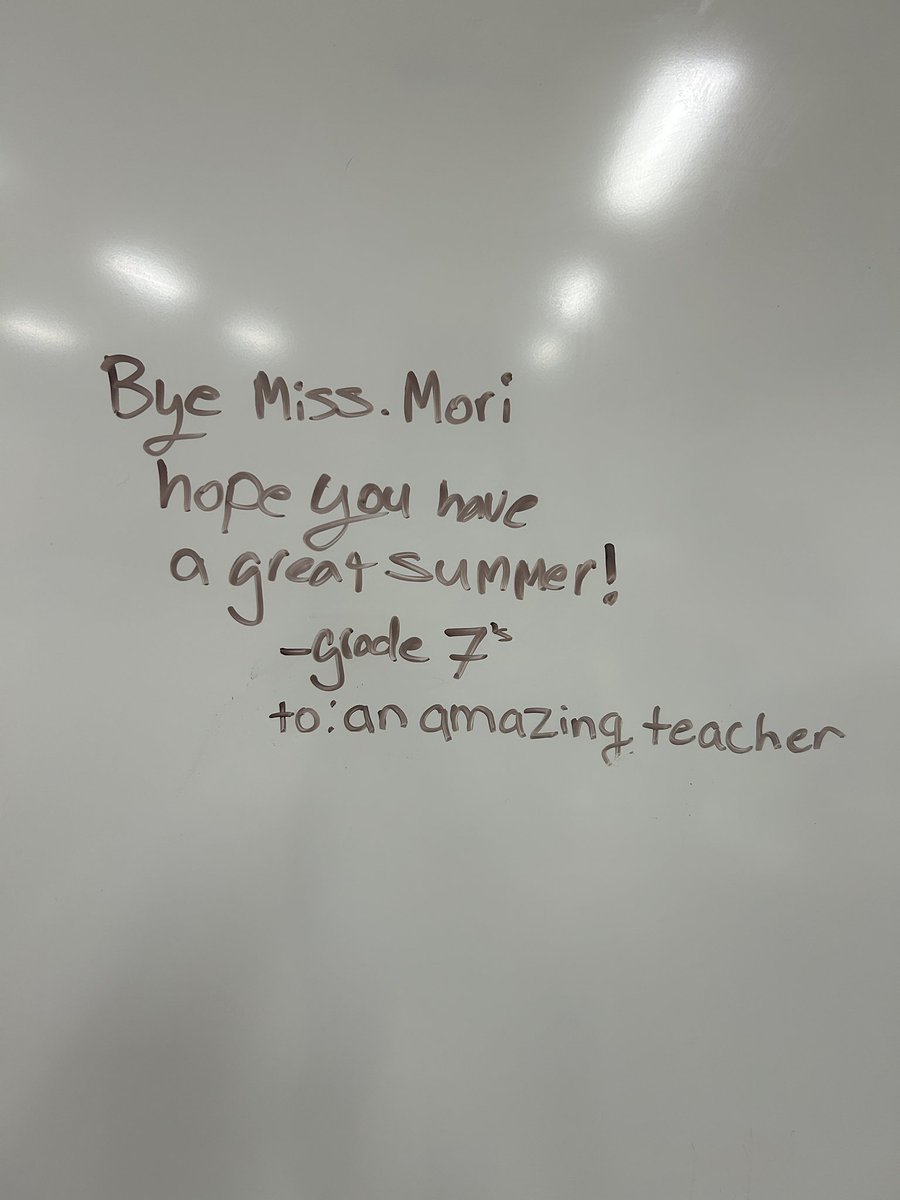 Bye Miss. Mori
hope you have
a great summer!
-grade 7's
to: an amazing teacher